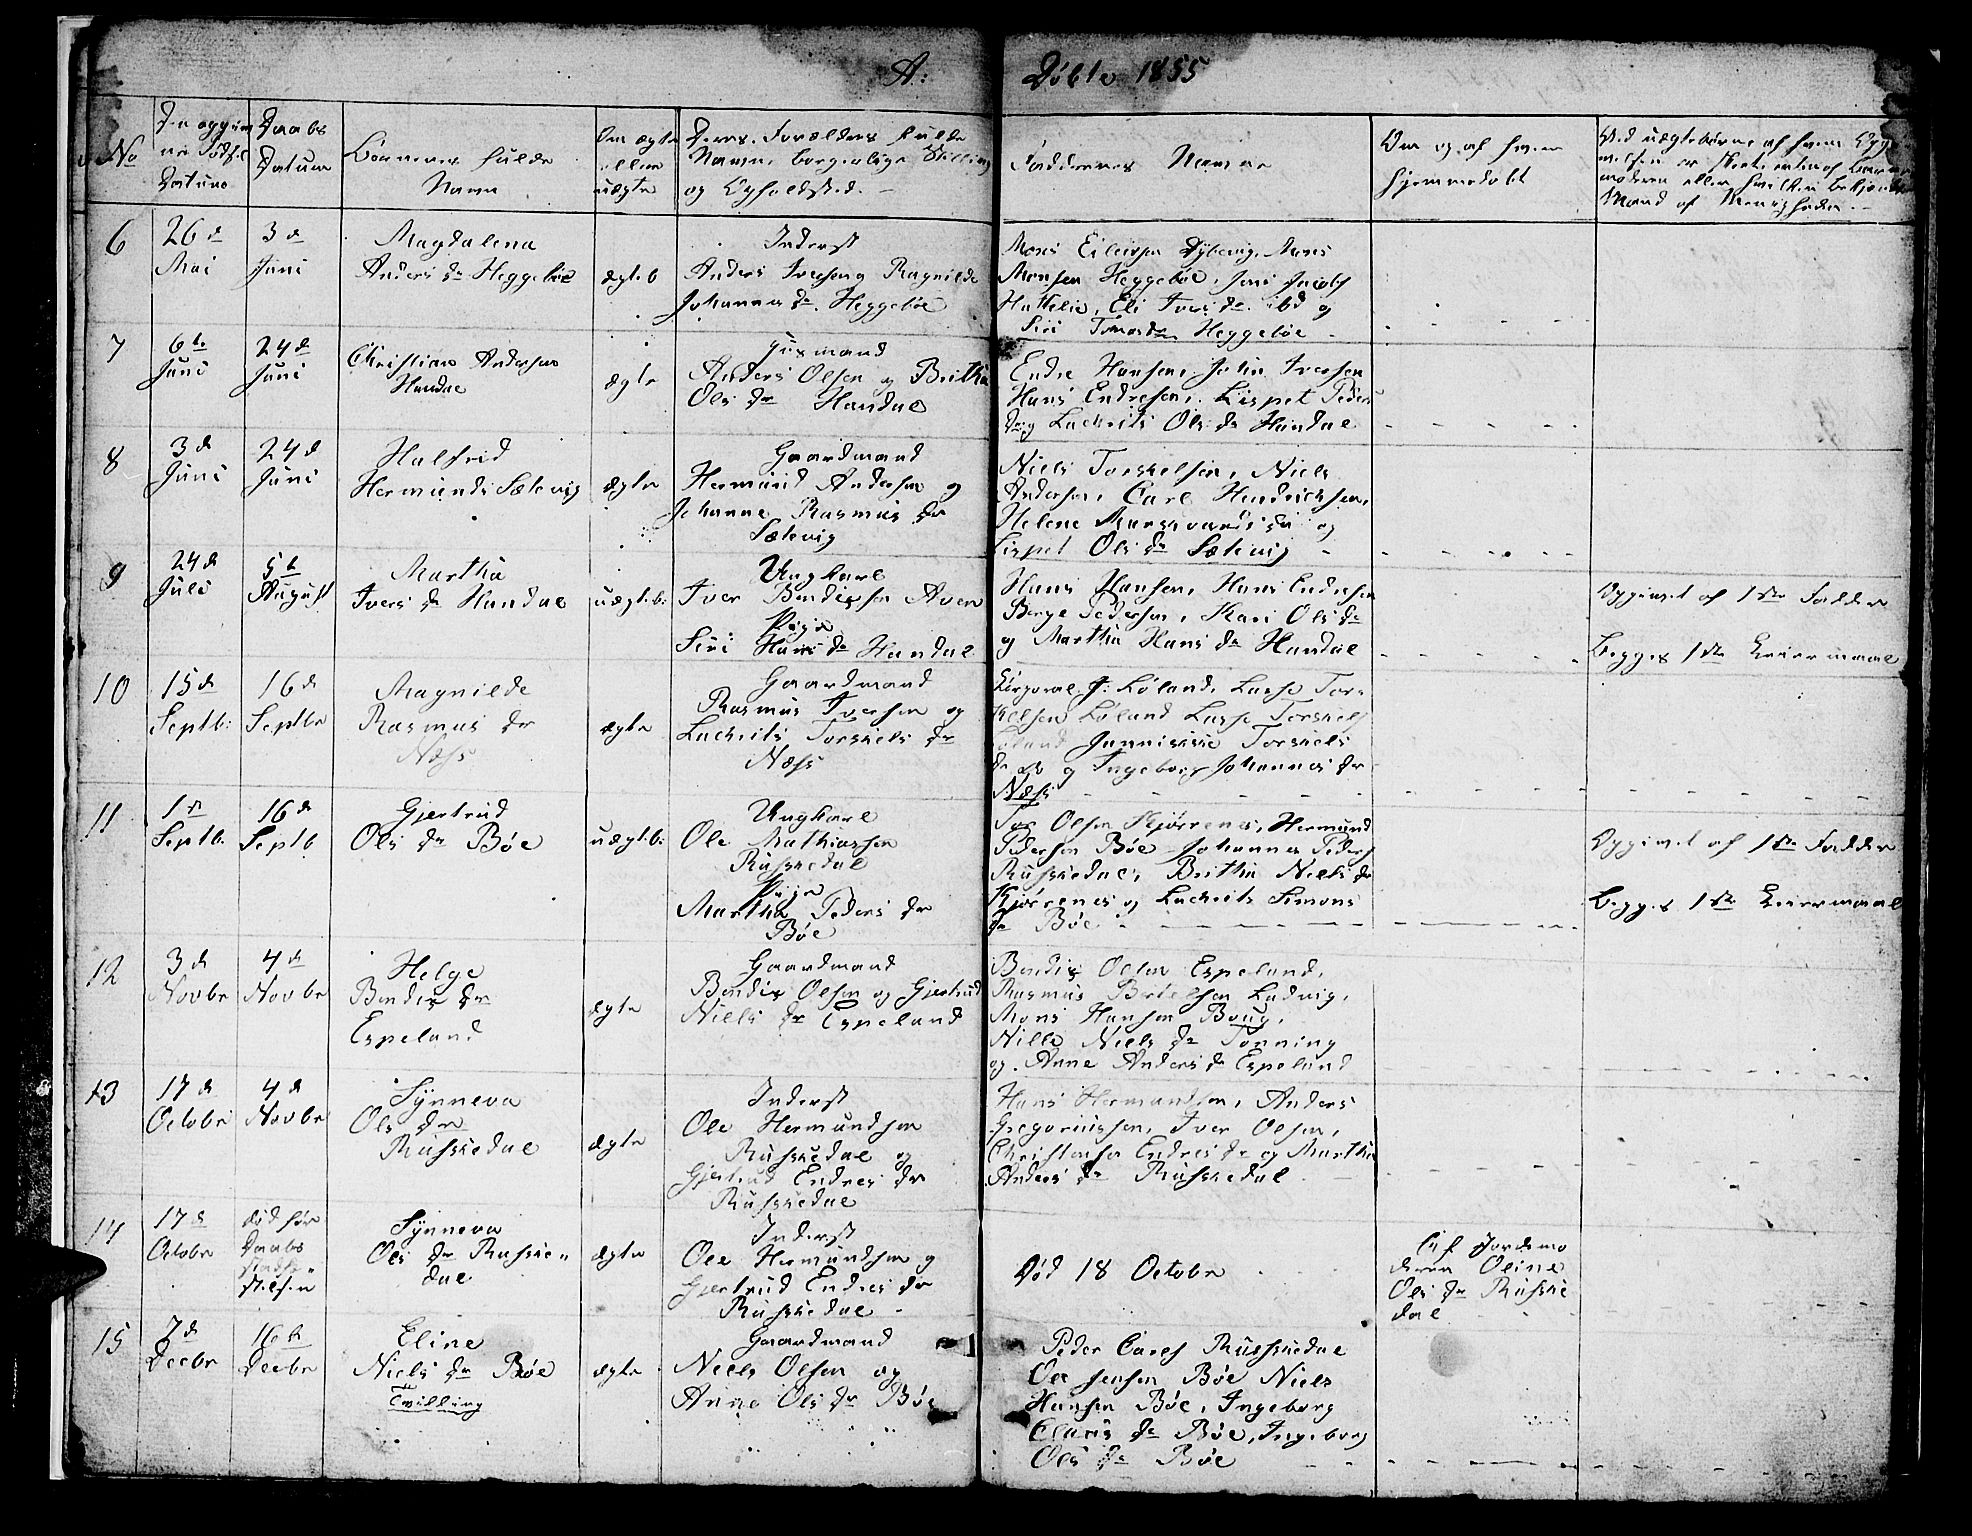 A: Døbte 1855
No
Datum
Daabs
Datum
Børnenes fulde
Navn
Om ægte
eller
uægte
Deres Forældres fulde
Navne, borgerlige Stilling
og Opholdsted. -
Faddernes Navne
Om og af hvem
hjemmedøbt
6
26 d
Mai
3 d
Juni
Magdalena
Anders Dr Heggebøe
ægteb
Inderst
Anders Iversen og Ragnilde
Johannes Dr. Heggebøe
Mons Eilevsen Dybevig, Mons
Monsen Heggebøe, Jens Jacobs
Hattelie, Eli Ivers Dr. ibd og
Siri Tomas Dr Heggebøe -
7
6te
Juni
24 d
Juni
Christian Andersen
Handal
ægte
Huusmand
Anders Olsen og Britha
Ols Dr Handal
Endre Hansen, John Iversen
Hans Endresen, Lispet Peders
Dr og Lachrits Ols Dr Handal
8
3 d
Juni
24 d
Juni
Halfrid
Hermunds Sætevig
ægte
Gaardmand
Hermund Andersen og
Johanne Rasmus Dr
Sætevig
Niels Torkelsen, Niels
Andersen, Carl Hendrichsen,
Helene Dr og
Lispet Ols Dr Sætevig -
9
24 d
Juli
5 t
August
Martha
Ivers Dr Handal
uægteb:
Ungkarl
Iver Bendixsen Aven
Pige
Siri Hans Dr Handal
Hans Hansen, Hans Endresen
Berge Pedersen, Kari Ols Dr
og Martha Hans Dr Handal
Opgivet af 1ste Fadder
Begges 1ste Leiermaal
10
15 d
Septb:
16 d
Septbr
Magnilde
Rasmus Dr
Næss
ægte
Gaardmand
Rasmus Iversen og
Lachrits Torskels Dr
Næss
Korporal J: Løland, Lasse Tor-
kelsen Løland Lasse Torskels
Løland Torskels
Dr og Ingeborg Johannes Dr
Næss
11
1 st
Septb:
16 d
Septb
Gjertrud
Ols Dr Bøe
uægteb:
Ungkarl
Ole Mathiassen
Russkedal
Pige
Martha Peders Dr
Bøe
Tor Olsen Kjørrenes, Hermund
Pedersen Bøe Johannes Peders
Russkedal, Britha Niels Dr
Kjørrenes og Lachrits Simons
Dr Bøe
Opgivet af 1ste Fadder
Begges 1ste Leiermaal
12
3 d
Novbr
4 d
Novbr
Helge
Bendix Dr
Espeland
ægte
Gaardmand
Bendix Olsen og Gjertrud
Niels Dr Espeland
Bendix Olsen Espeland,
Rasmus Bertelsen Ladvig,
Mons Hansen Boug,
Nille Niels Dr Torning
og Anne Anders Dr Espeland
13
17 d
Octobr
4 d
Novbr
Synneva
Ols Dr
Russkedal
ægte
Inderst
Ole Hermundsen
Russkedal og
Gjertrud Endres Dr
Russkedal
Hans Hermundsen, Anders
Gregoriussen, Iver Olsen,
Endres Dr og Martha
Anders Dr Russkedal
14
17 d
Octobr
død før
Daabs
Synneva
Ols Dr Russke"
dal
ægte
Inderst
Ole Hermundsen og
Gjertrud Endres Dr
Russkedal -
Død 18 Octobr
af Jordemo
deren Oline
Ols Dr Russke
dal
15
7 d
Decbr
16 de
Decbr
Eline
Niels Dr Bøe
Tvilling
ægte
Gaardmand
Niels Olsen og
Anne Ols Dr Bøe
Peder Carls Russkedal
Ole Jensen Bøe Niels
Hansen Bøe, Ingeborg
Claus Dr Bøe, Ingeborg
Ols Dr Bøe